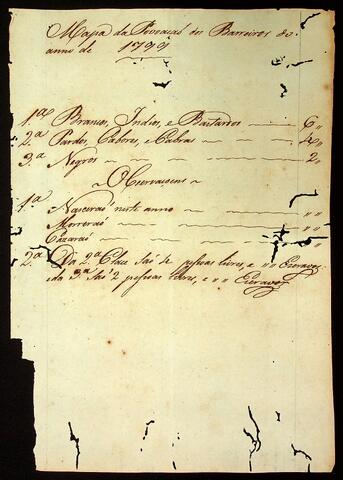 Mapa da Povoação dos Barreiros do
anno de 1799
1.ª Brancos, Indios, e Bastardos 6 "
2.ª Pardos, Cabores, e Cabras 4 "
3.ª Negros 2 "
Observaçoens
1.ª Nascerão neste anno " "
Morrerão " "
Cazarão " "
2.ª Da 2.ª Clace são 4 pessoas livres, e " " Escravos
e da 3.ª são 2 pessoas livres, e " " Escravos